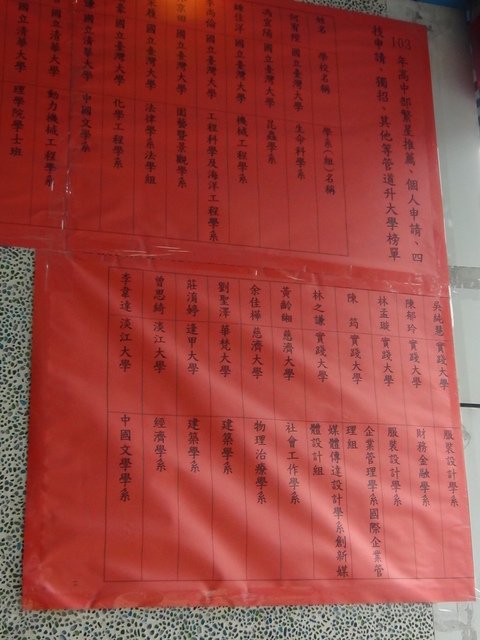 103 年高中部繁星推薦、個人申請、四
技申請、獨招、其他等管道升大學榜單
姓名 學校名稱 學系(組)名稱
何宥樘 國立臺灣大學 生命科學系
馮宜陽 國立臺灣大學 昆蟲學系
鍾佳洋 國立臺灣大學 機械工程學系
倫 國立臺灣大學 工程科學及海洋工程學系
田 國立臺灣大學 園藝暨景觀學系
國立臺灣大學 法律學系法學組
國立臺灣大學 化學工程學系
謙 國立清華大學 中國文學系
國立清華大學 動力機械工程學系
國立清華大學 理學院學士班
吳純慧 實踐大學 服裝設計學系
陳郁玲 實踐大學 財務金融學系
林孟璇 實踐大學 服裝設計學系
陳筠 實踐大學 企業管理學系國際企業管
理組
林之謙 實踐大學 媒體傳達設計學系創新媒
體設計組
黃齡緗 慈濟大學 社會工作學系
余佳樺 慈濟大學 物理治療學系
劉聖澤 華梵大學 建築學系
莊淯婷 逢甲大學 建築學系
曾思綺 淡江大學 經濟學系
李韋達 淡江大學 中國文學學系